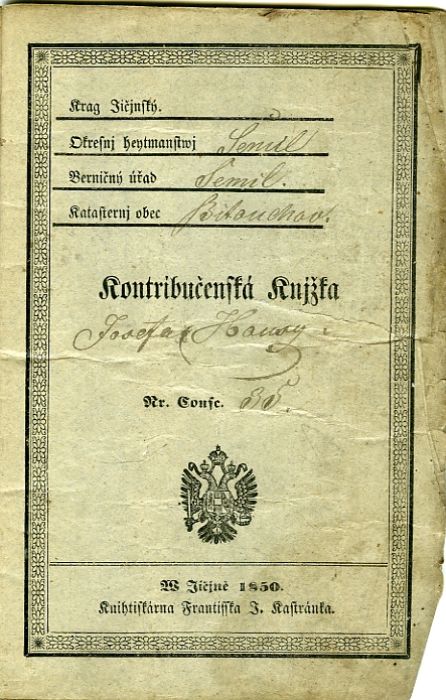 Krag Jičjnský.
Okresnj heytmanstwj Semil
Berničný úřad Semil.
Katasternj obec Bitouchov.
Kontribučenská Knjžka
Josefa Hausy
Nr. Consc. 35.
W Jičjně 1850.
Knihtiskárna Frantisska J. Kastránka.